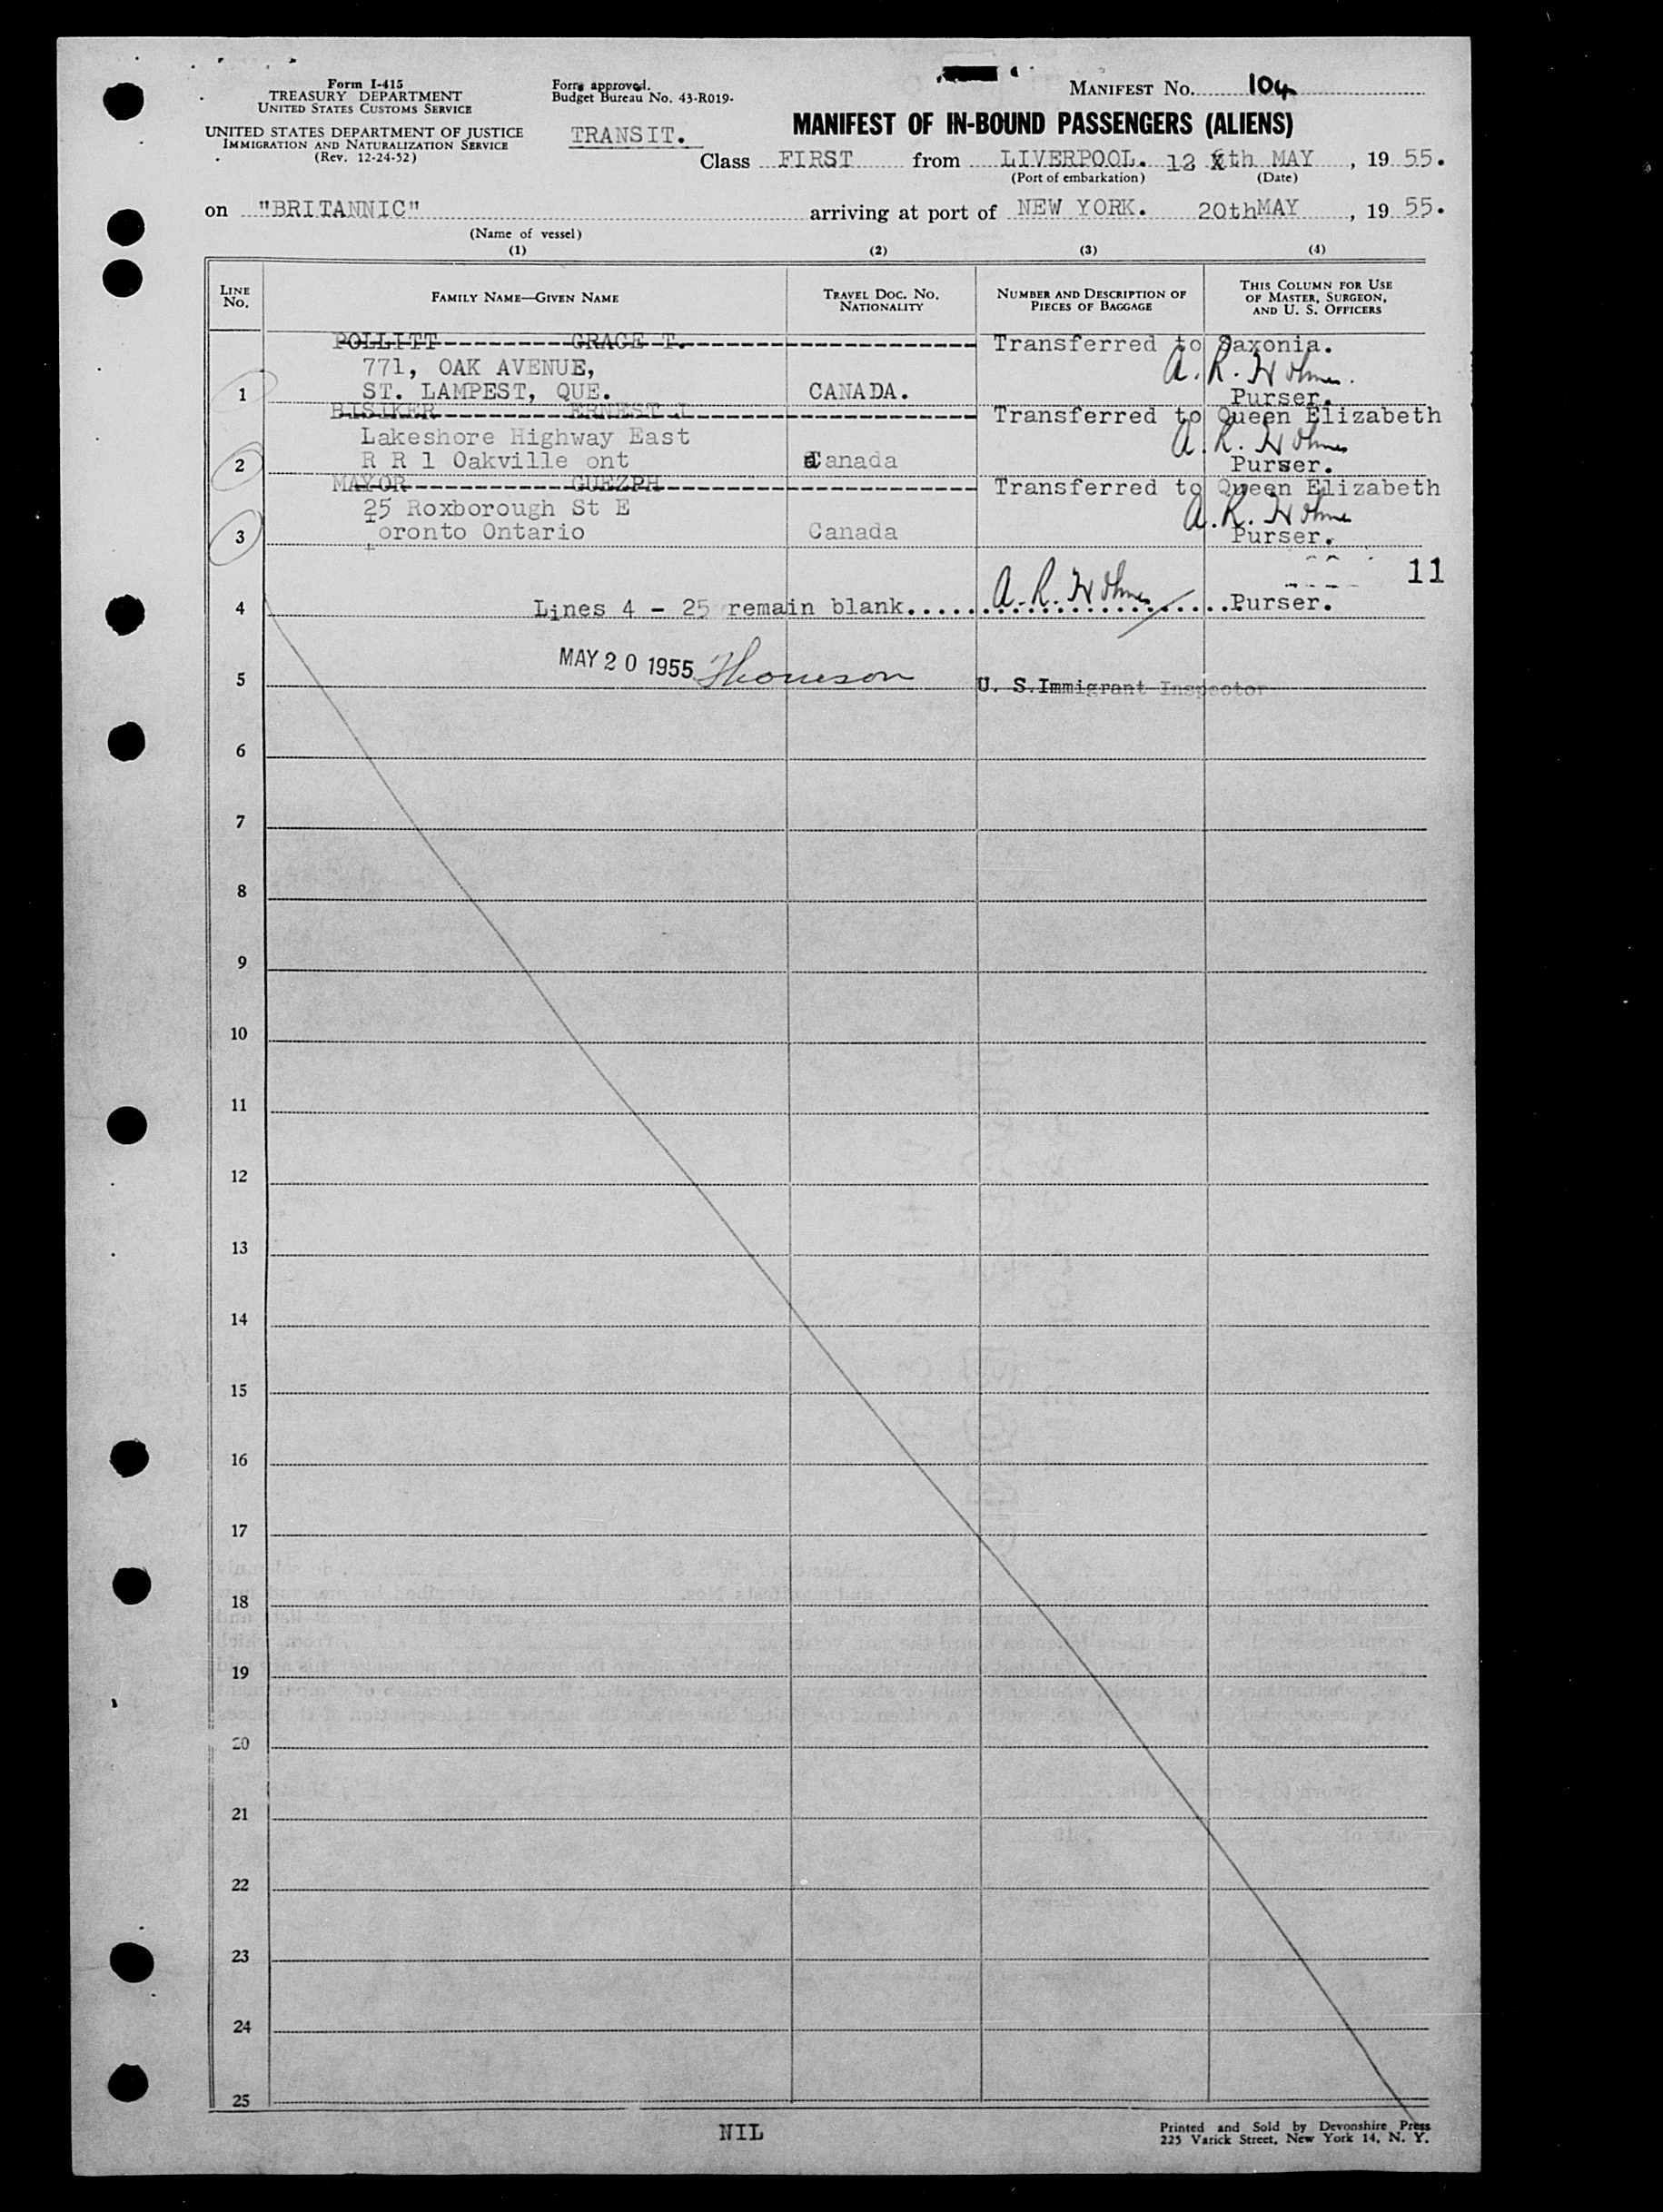 Form I-415
TREASURY DEPARTMENT
UNITED STATES CUSTOMS SERVICE
UNITED STATES DEPARTMENT OF JUSTICE
IMMIGRATION AND NATURALIZATION SERVICE
(Rev. 12-24-52)
Form approved.
Budget Bureau No. 43-R019-
TRANSIT.
MANIFEST NO. 104
MANIFEST OF IN-BOUND PASSENGERS (ALIENS)
Class FIRST from LIVERPOOL. 12 th MAY , 19 55.
(Port of embarkation) (Date)
on "BRITANNIC" arriving at port of NEW YORK. 20thMAY , 19 55.
(Name of vessel)
(1) (2) (3) (4)
LINE NO. FAMILY NAME—GIVEN NAME TRAVEL DOC. NO. NATIONALITY NUMBER AND DESCRIPTION OF PIECES OF BAGGAGE THIS COLUMN FOR USE OF MASTER, SURGEON, AND U. S. OFFICERS
POLLITT GRACE T. Transferred to Saxonia.
771, OAK AVENUE,
1 ST. LAMPEST, QUE. CANADA. Purser.
BISIKER ERNEST J Transferred to Queen Elizabeth
Lakeshore Highway East
2 R R 1 Oakville ont Canada Purser.
MAYOR GUEZPH Transferred to Queen Elizabeth
25 Roxborough St E
3 Toronto Ontario Canada Purser.
11
4 Lines 4 - 25 remain blank. Purser.
MAY 20 1955
5 U. S. Immigrant Inspector
6
7
8
9
10
11
12
13
14
15
16
17
18
19
20
21
22
23
24
25
NIL
Printed and Sold by Devonshire Press
225 Varick Street, New York 14, N. Y.